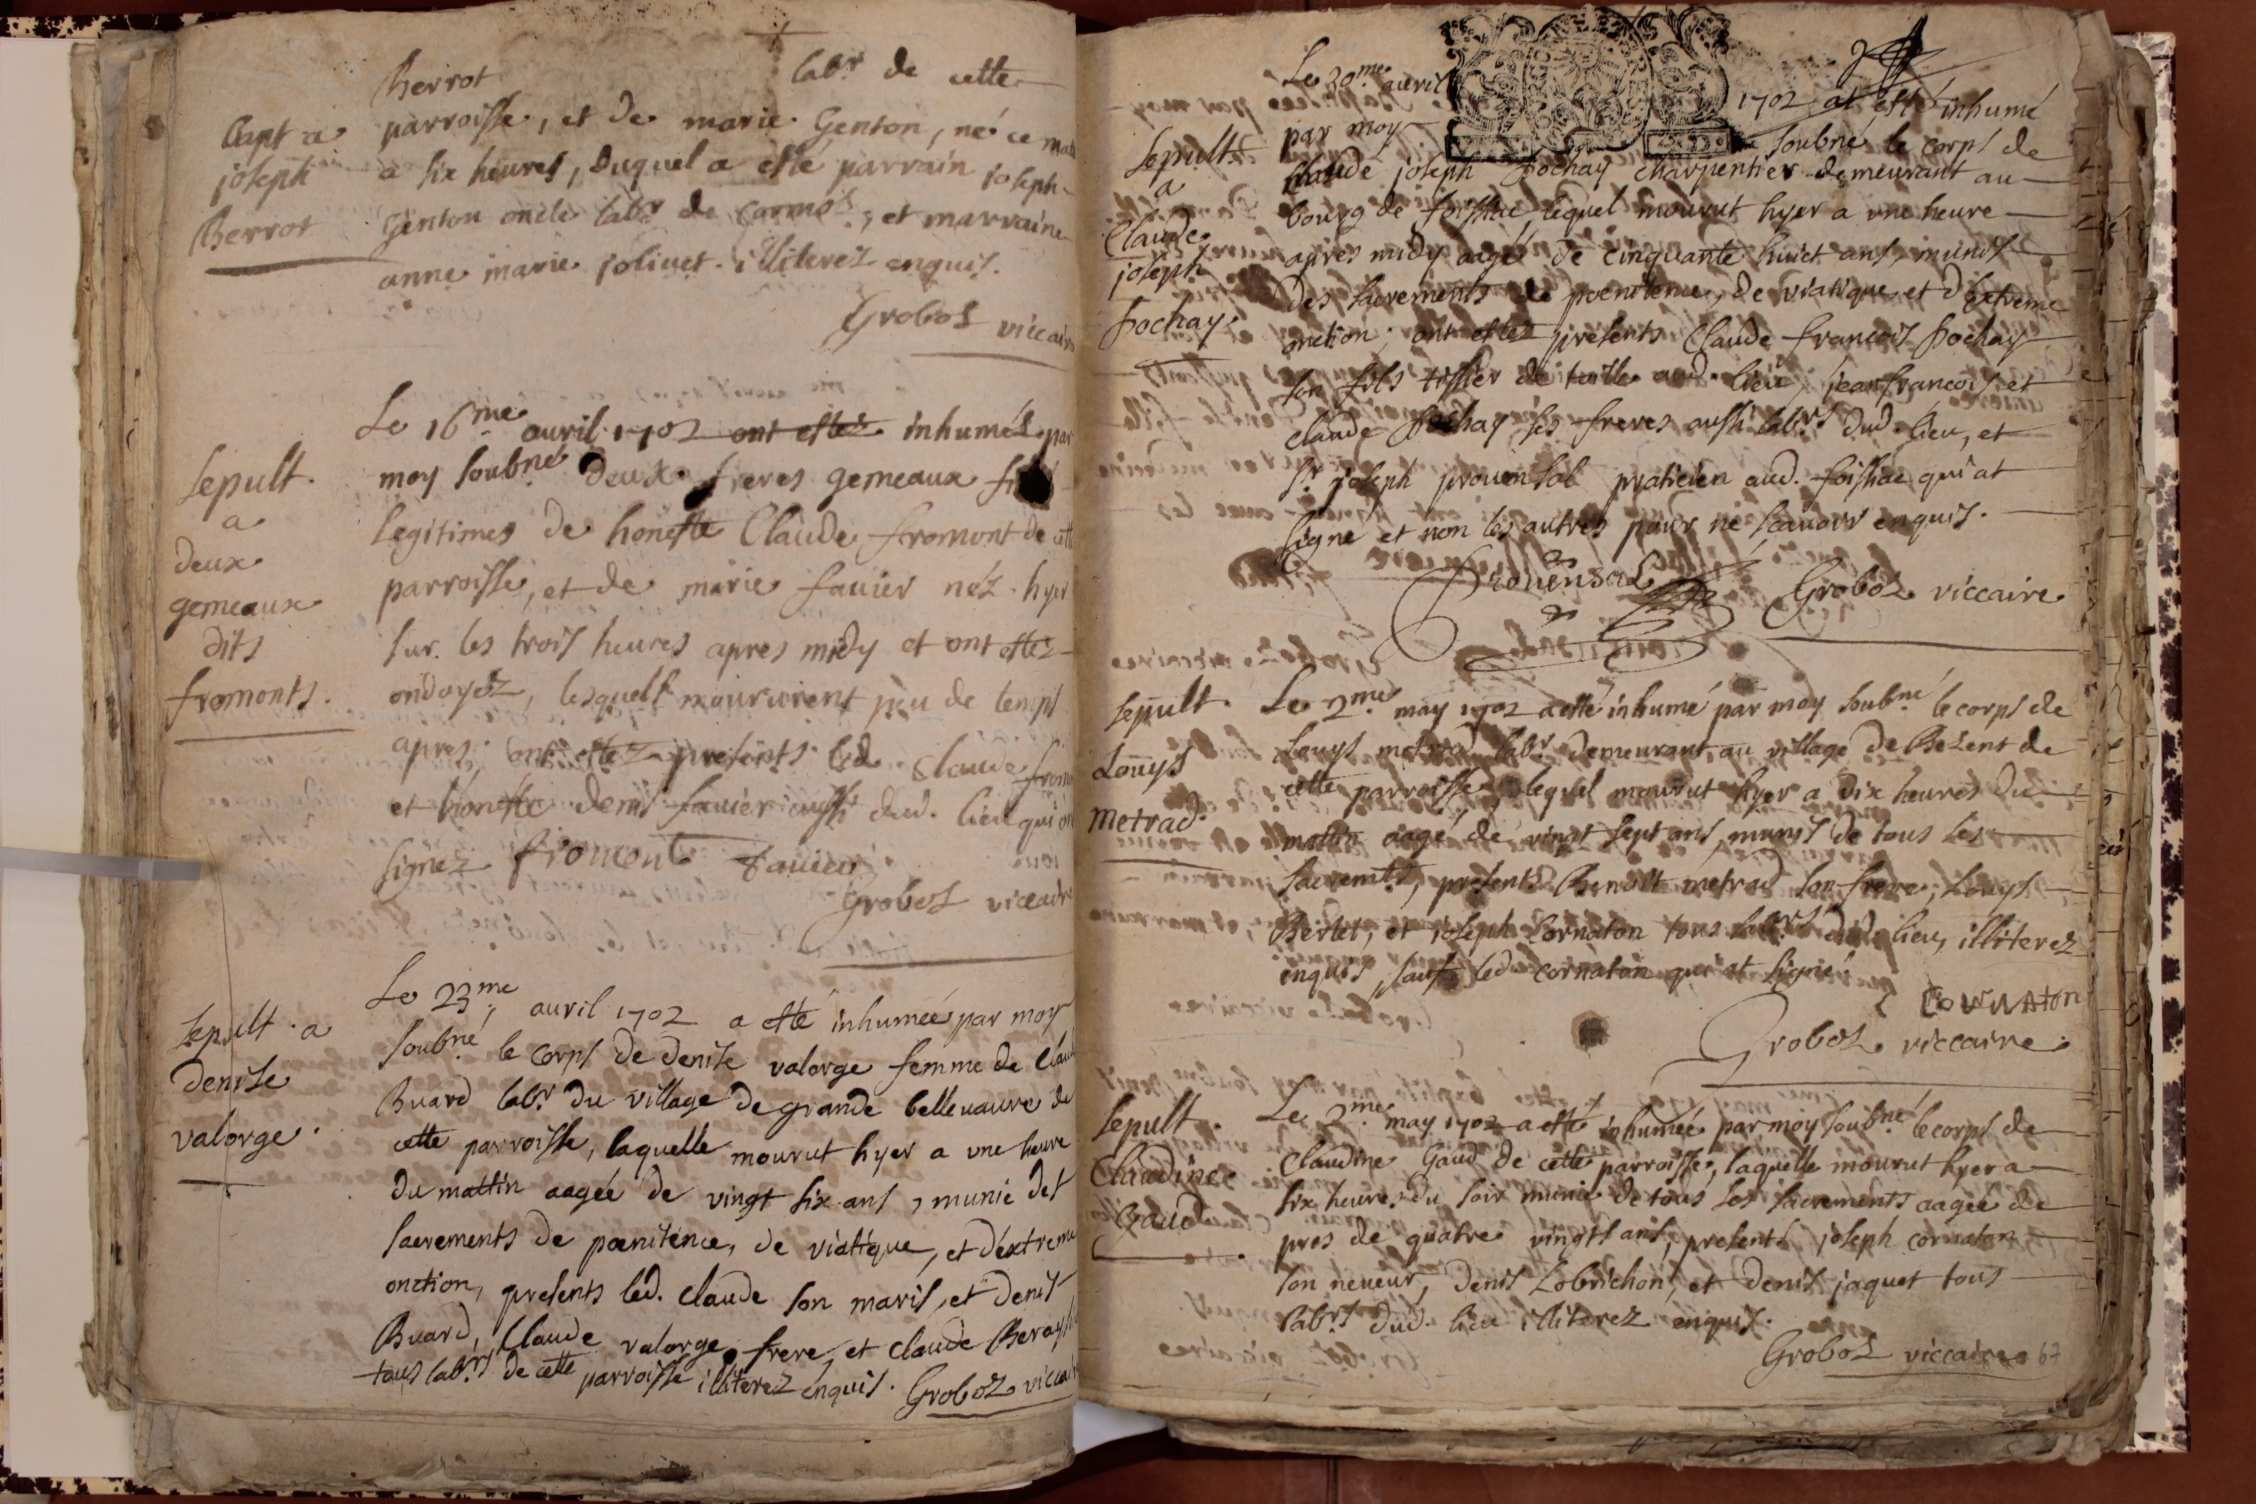 Berrot labr de cette
Bapt a
joseph
Berrot
parroisse, et de marie Genton, né ce
a six heures, duquel a esté parrain joseph
Genton oncle labr de , et marraine
anne marie jolivet. illiterez enquis.
Groboz viccaire
Sepult.
a
deux
gemeaux
dits
fromonts.
Le 16me avril 1702 ont estez inhumés par
moy soubné deux freres gemeaux
legitimes de honeste Claude fromont de cette
parroisse, et de marie favier néz hyer
sur les trois heures apres midy et ont estez
ondoyéz, lesquels moururent peu de temps
apres, ont estez presents led. Claude
et honeste denis favier aussi dud. lieu qui
signez fromont favier
Groboz viccaire
Sepult. a
denise
valorge.
Le 23me avril 1702 a esté inhumée par moy
soubné le corps de denise valorge femme de
Buard labr du village de grande bellevavre de
cette parroisse, laquelle mourut hyer a une heure
du mattin aagée de vingt six ans, munie des
sacrements de pœnitence, de viatique, et d'extreme
onction, presents led. claude son maris, et denis
Buard, Claude valorge frere, et claude
tous labrs de cette parroisse illiterez enquis. Groboz viccaire
Sepult
a
Claude
joseph
pochay.
Le 30me avril 1702 at esté inhumé
par moy soubné le corps de
claude joseph pochay charpentier demeurant au
bourg de foissiac, lequel mourut hyer a une heure
apres midy aagé de cinquante huict ans, munis
des sacrements de pœnitence, de viatique, et d'extreme
onction; ont estez présents Claude françois pochay
son fils tissier de toille aud. lieu, jean françois, et
claude pochay ses freres aussi labrs dud. lieu, et
Sr joseph provensal praticien aud. foissiac qui at
signé et non les autres pour ne sçavoir enquis.
Provensal Groboz viccaire
Sepult.
Louys
metrad.
Le 2me may 1702 a esté inhumé par moy soubné le corps de
Louys metrad labr demeurant au village de Bezent de
cette parroisse, lequel mourut hyer a dix heures du
mattin aagé de vingt sept ans, munys de tous les
sacremts, présents Benoit metrad son frere, Louys
Berlet, et joseph Cornaton tous labrs dud. lieu, illiterez
enquis, sauf led. cornaton qui at signé
CORNATon
Groboz viccaire.
Sepult.
Claudine
Gaud.
Le 2me may 1702 a esté inhumée par moy soubné le corps de
Claudine Gaud de cette parroisse, laquelle mourut hyer a
six heures du soir munie de tous les sacrements aagée de
pres de quatre vingts ans, presents joseph cornaton
son neveur, denis Lobrichon, et denis jaquet tous
labrs dud. lieu illiterez enquis.
Groboz viccaire
67